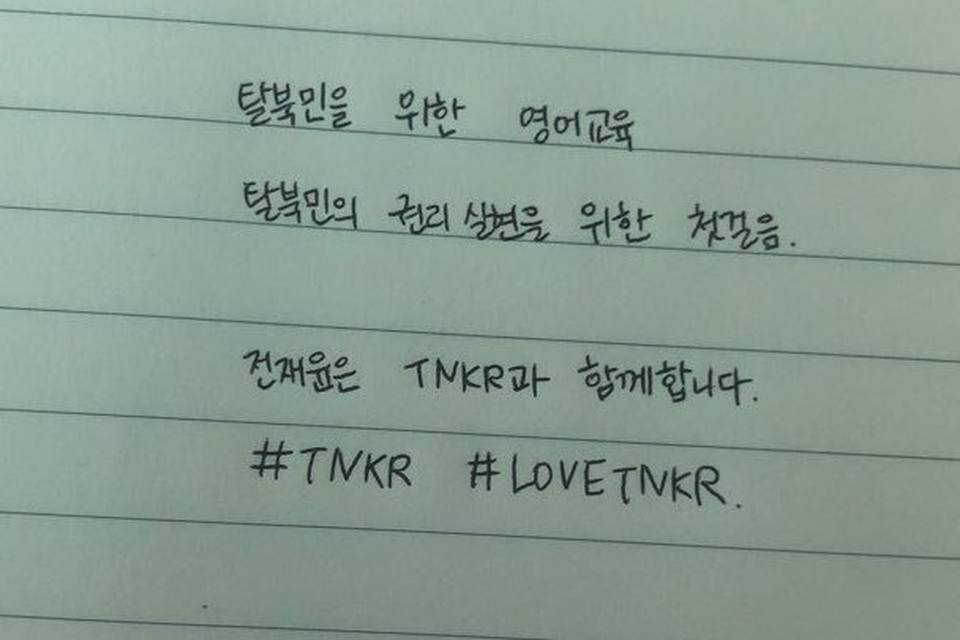 탈북민을 위한 영어교육
탈북민의 권리 실현을 위한 첫걸음.
전재윤은 TNKR과 함께합니다.
#TNKR #LOVETNKR.